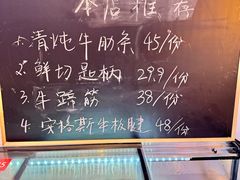 本店推荐
1.清炖牛肋条 45/份
2.鲜切匙柄 29.9/份
3.牛蹄筋 38/份
4.安格斯牛板腱 48/份